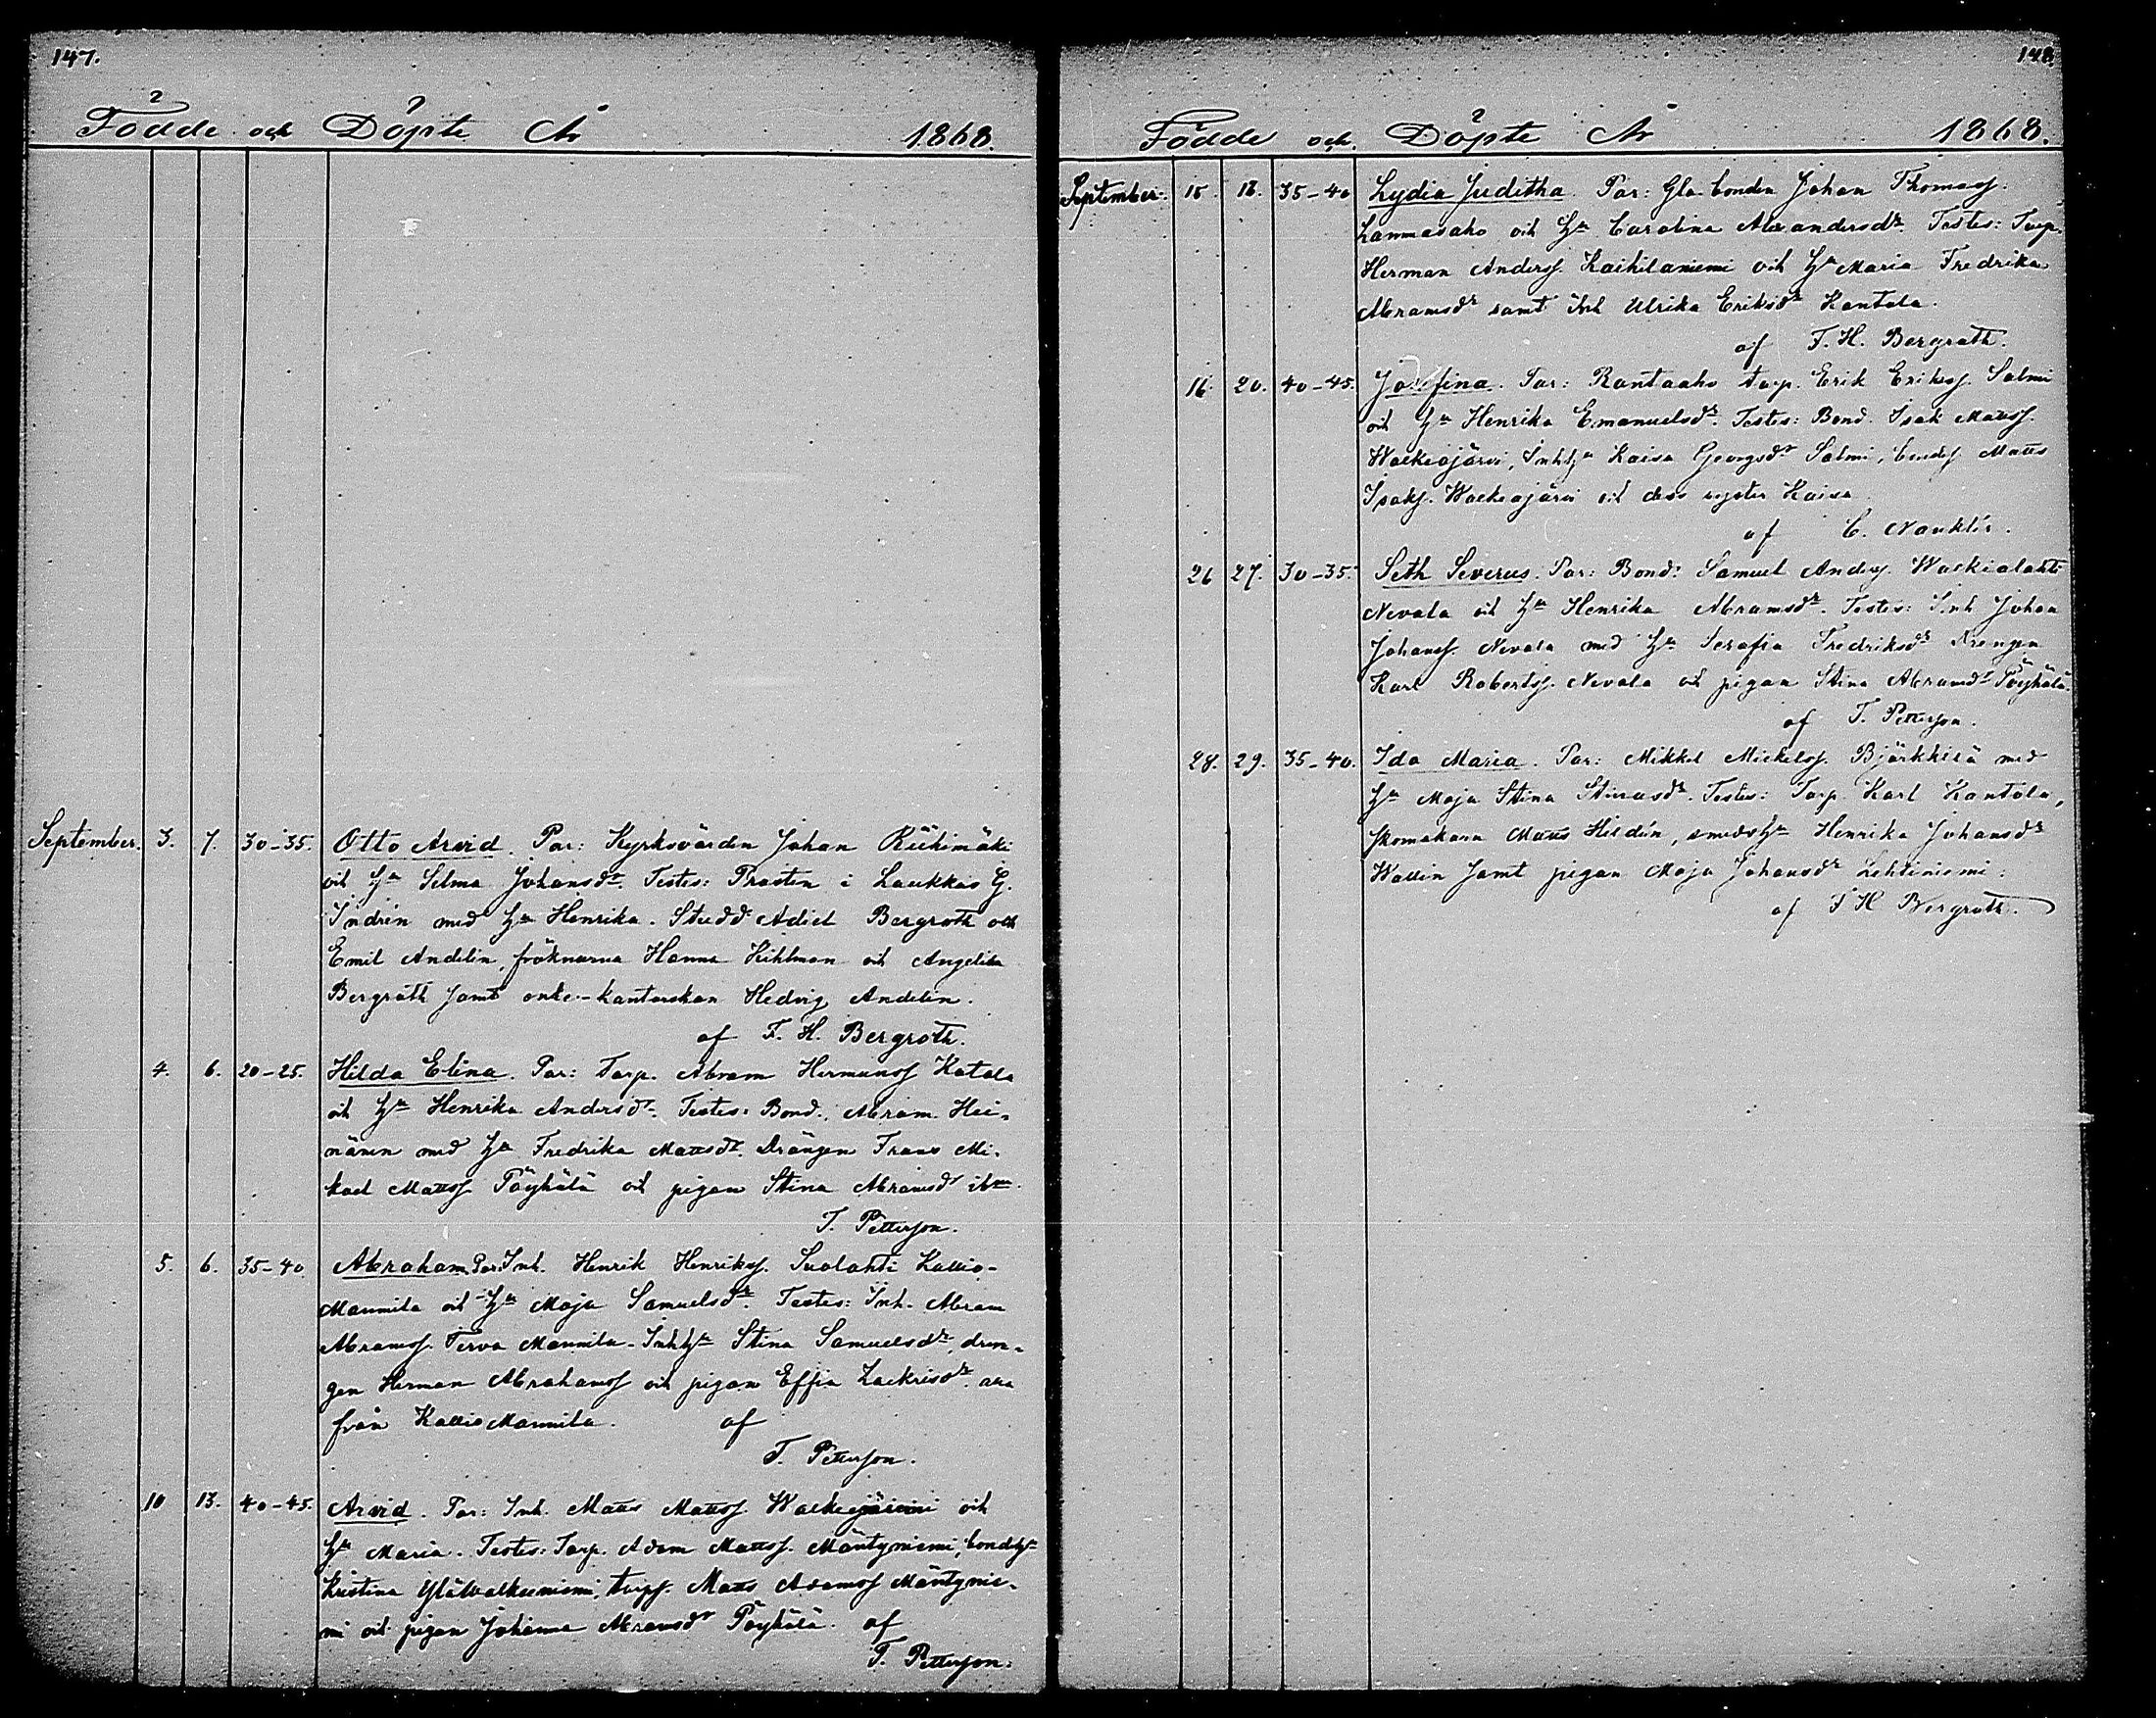 147.
Födde och Döpte År 1868.
September. 3. 7. 30-35. Otto Arvid. Par: Kyrkovärden Johan Riihimäki
och Hu Selma Johansdr. Testes: Prosten i Laukkas G.
Indrén med Hu Henrika. Studd: Adiel Bergroth och
Emil Andelin, fröknarna Hanna Kihlman och Angelika
Bergroth samt enke-kantorskan Hedvig Andelin.
af F. H. Bergroth.
4. 6. 20-25. Hilda Elina. Par: Torp. Abram Hermanss Katala
och Hu Henrika Andersdr. Testes: Bond. Abram Hei-
nänen med Hu Fredrika Mattsdr. Drängen Frans Mi-
kael Mattss. Pöyhälä och pigan Stina Abramsdr ibm.
T. Petterson.
5. 6. 35-40. Abraham. Par: Inh. Henrik Henrikss. Suolahti Kallio-
Mannila och Hu Maja Samuelsdr. Testes: Inh. Abram
Abramss. Terva Mannila. InhHu Stina Samuelsdr, drän-
gen Herman Abrahamss och pigan Effia Zackrisdr. alla
från Kallio Mannila. af
T. Petterson.
10 13. 40-45. Arvid. Par: Inh. Matts Mattss. och
Hu Maria. Testes: Torp. Adam Mattss. Mäntyniemi, bondHu
Kristina Ylä Walkeeniemi, torps. Matts Adamss Mäntynie-
mi och pigan Johanna Abramsdr Pöyhälä. af
T. Petterson.
148.
Födde och Döpte År 1868.
September: 15. 18. 35-40 Lydia Juditha. Par: Gla-bonden Johan Thomass.
Lammasaho och Hu Carolina Alexandersdr. Testes: Torp.
Herman Anderss. Kaihilaniemi och Hu Maria Fredrika
Abramsdr samt inh Ulrika Eriksdr Kantola.
af F. H. Bergroth.
16. 20. 40-45. Josefina. Par: Rantaaho torp. Erik Erikss. Salmi
och Hu Henrika Emanuelsdr. Testes: Bond. Isak Matss.
Walkeajärvi, InhHu Kaisa Georgsdr Salmi, bondes Matts
Isakss. Walkeajärvi och dess syster Kaisa.
af C. Nauklér.
26 27. 30-35. Seth Severus. Par: Bond: Samuel Anderss. Walkialahti
Nevala och Hu Henrika Abramsdr. Testes: Inh Johan
Johanss. Nevala med Hu Serafia Fredriksdr Drengen
Karl Robertss. Nevala och pigan Stina Abramsdr Pöyhälä.
af T. Petterson.
28. 29. 35-40. Ida Maria. Par: Mikkel Mickelss. Björkkilä med
Hu Maja Stina Testes: Torp. Karl Kantola,
skomakaren Matts Hildén, smedsHu Henrika Johansdr
Wallin samt pigan Maja Johansdr Lehtiniemi.
af F H Bergroth.